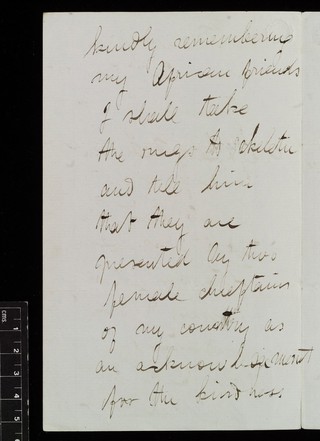 kindly remembering
my African friends
I shall take
the rugs to Sekeletu
and tell him
that they are
presented by two
female chieftains
of my country as
an acknowledgement
for the kindness
cms
1
2
3
4
5